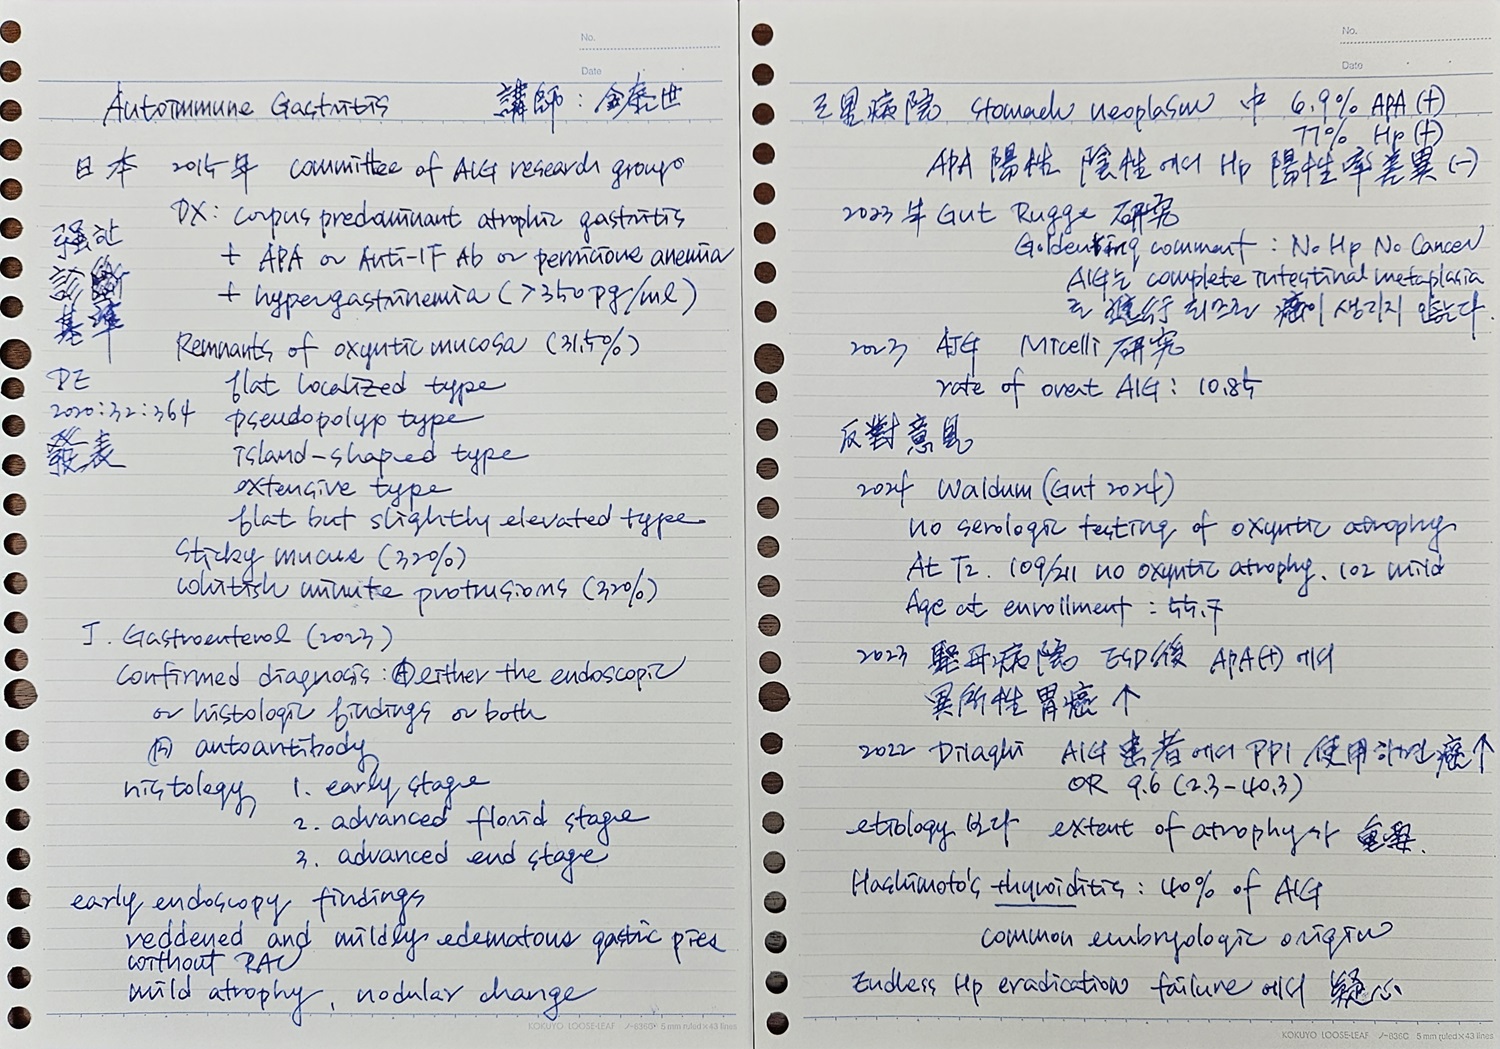 No.
Date
Autoimmune Gastritis 講師 : 金泰世
日本 2015年 committee of AIG research group
DX: corpus predominant atrophic gastritis
强한
+ APA or Anti-IF Ab or pernicious anemia
診斷
+ hypergastrinemia (>350pg/ml)
基準
Remnants of oxyntic mucosa (31.5%)
DE
flat localized type
2020:32:364
pseudopolyp type
發表
island-shaped type
extensive type
flat but slightly elevated type
Sticky mucus (32%)
Whitish minute protrusions (32%)
J. Gastroenterol (2023)
Confirmed diagnosis : Ⓐ either the endoscopic
or histologic findings or both
Ⓑ autoantibody
histology 1. early stage
2. advanced florid stage
3. advanced end stage
early endoscopy findings
reddened and mildly edematous gastric pits
without RAC
mild atrophy, nodular change
KOKUYO LOOSE-LEAF ノ-836C 5 mm ruled×43 lines
No.
Date
三星病院 stomach neoplasm 中 6.9% APA (+)
77% Hp (+)
APA 陽性 陰性에서 Hp 陽性率差異 (-)
2023年 Gut Rugge 硏究
Goldenting comment : No Hp No Cancer
AIG는 complete intestinal metaplasia
로 進行 되므로 癌이 생기지 않는다.
2023 AJG Micelli 硏究
rate of overt AIG : 10.85
反對意見
2024 Waldum (Gut 2024)
no serologic testing of oxyntic atrophy
At T2. 109/211 no oxyntic atrophy. 102 mild
Age at enrollment : 55.7
2023 聖母病院 ESD後 APA(+) 에서
異所性胃癌 ↑
2022 Dilaghi AIG 患者에서 PPI 使用하면 癌↑
OR 9.6 (2.3-40.3)
etiology 보다 extent of atrophy가 重要.
Hashimoto's thyroiditis : 40% of AIG
common embryologic origin
Endless Hp eradication failure 에서 疑心
KOKUYO LOOSE-LEAF ノ-836C 5 mm ruled×43 lines